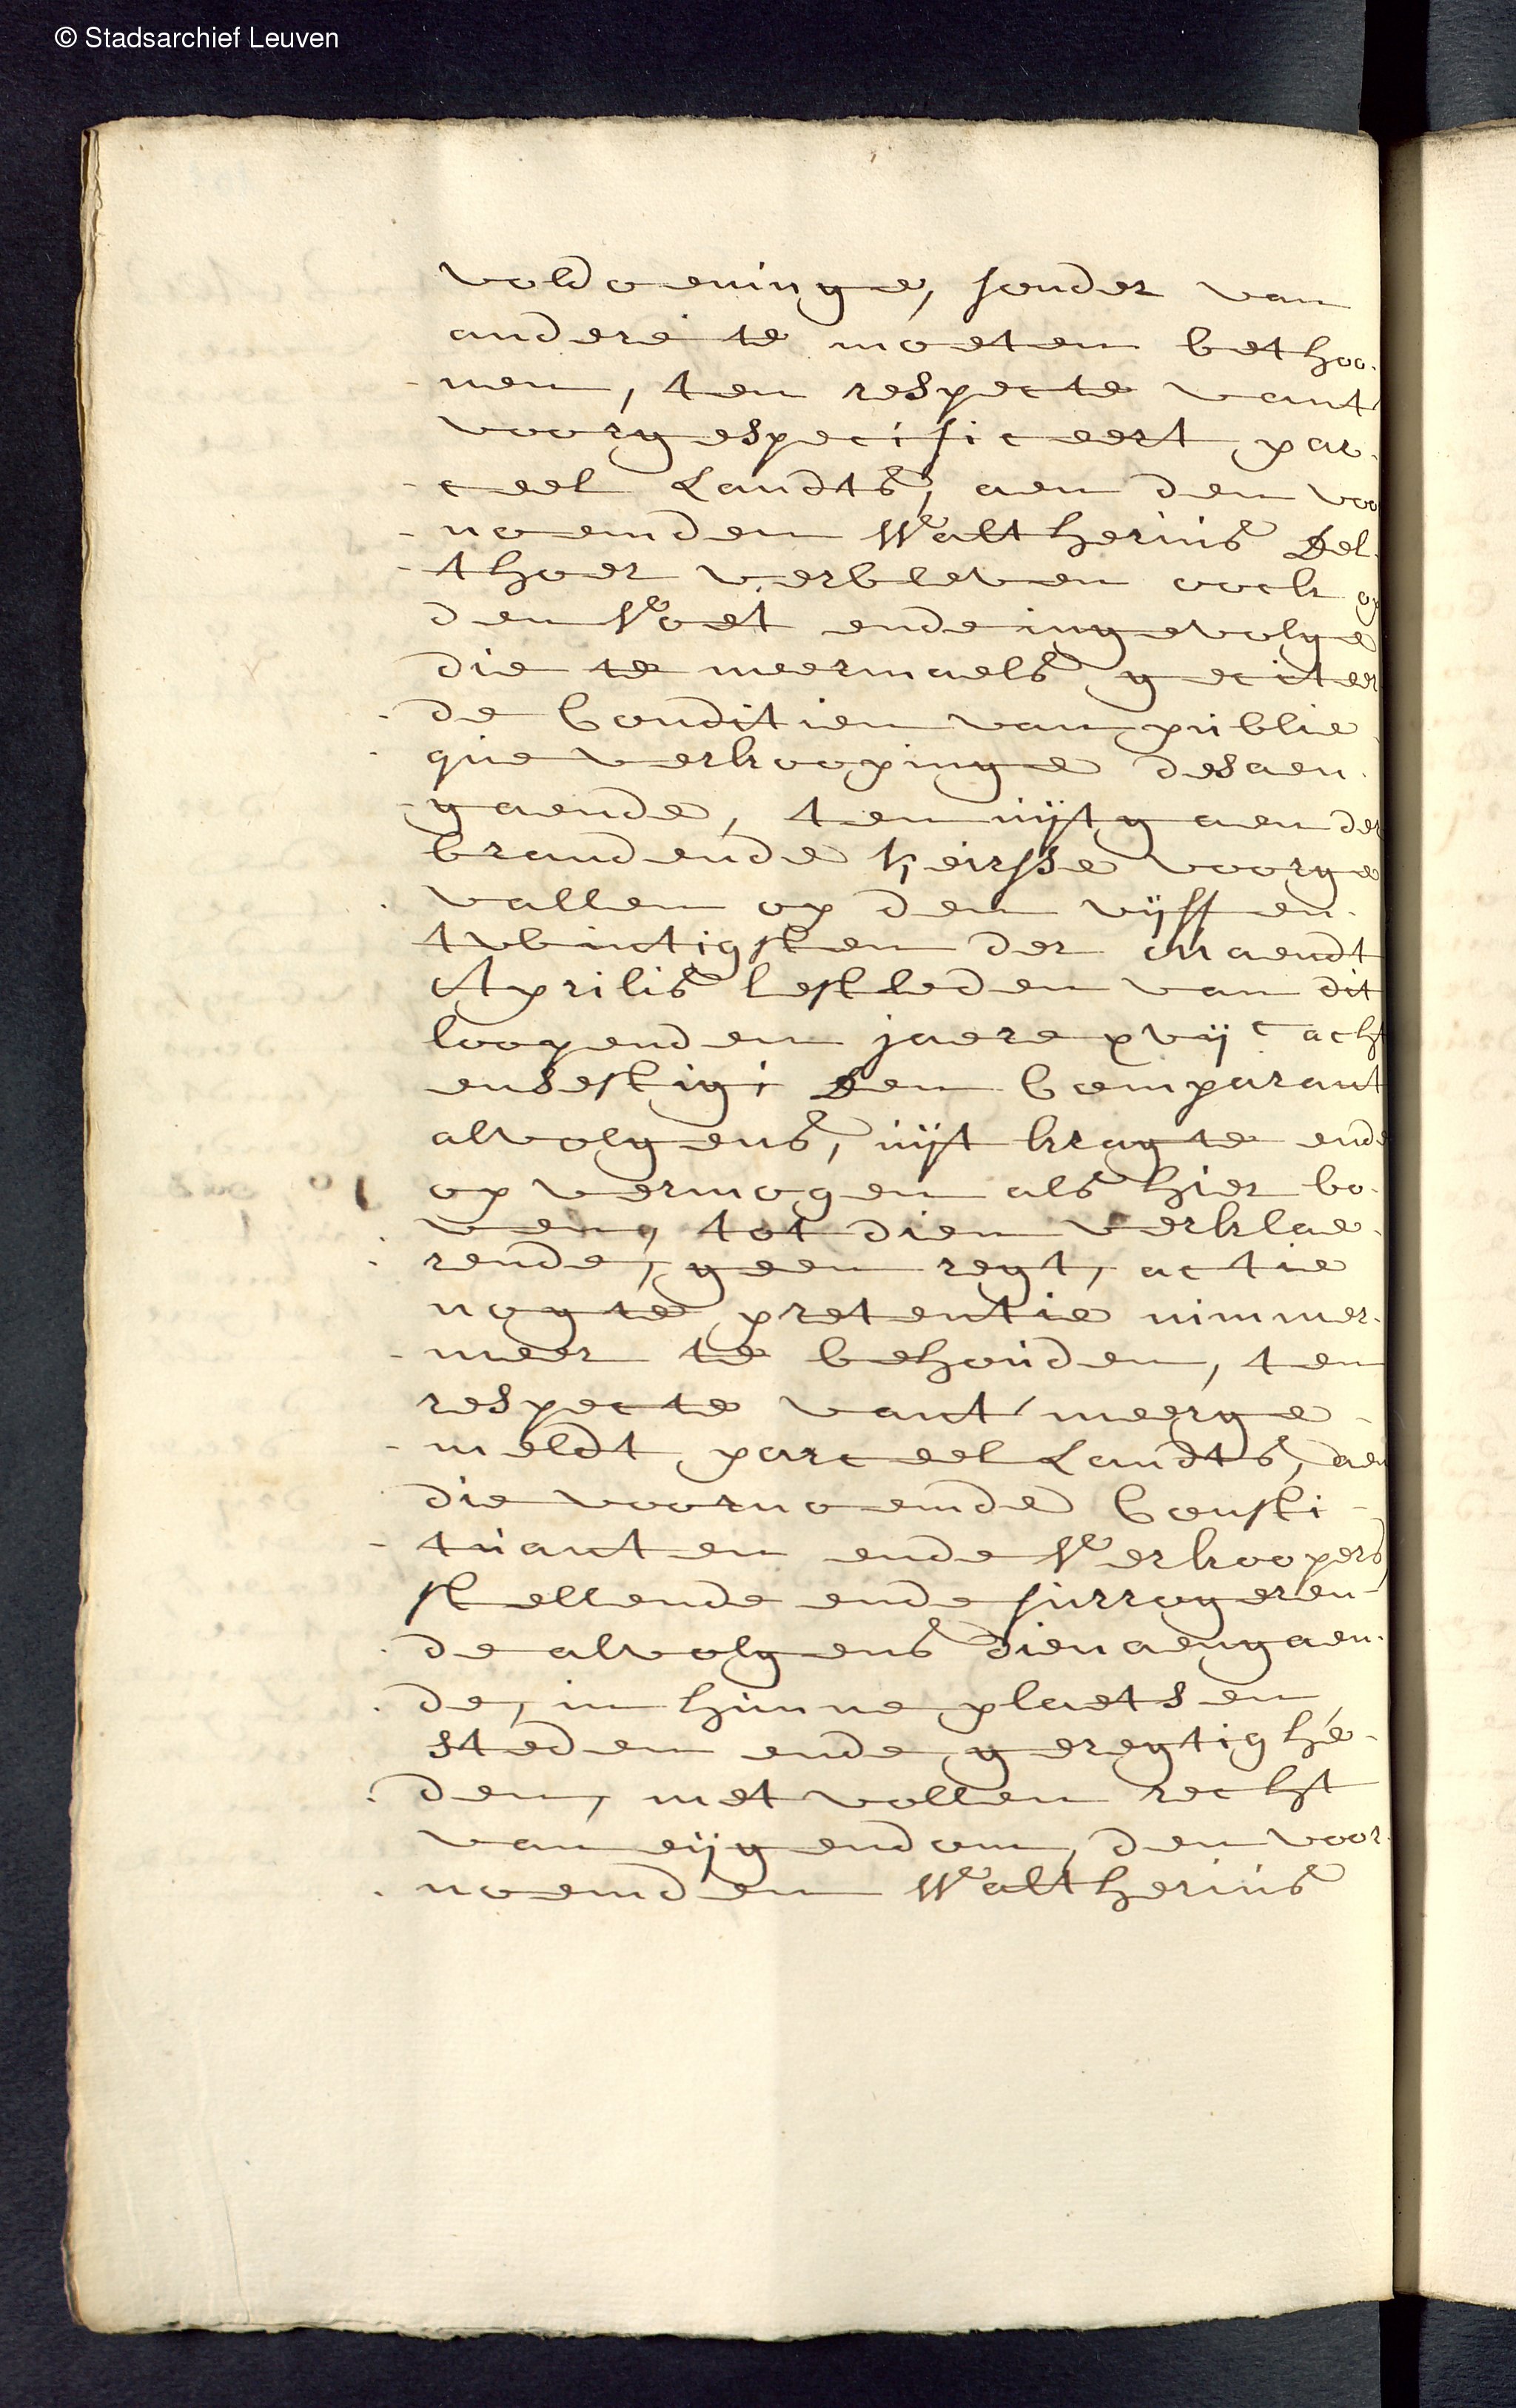 © Stadsarchief Leuven
voldoeninge, sonder van
andere te moeten bethoo-
-nen, ten respecte vant
voorgespecificeert par-
-ceel Landts, aen den voo
-noemden Waltherus Del-
-thoer verbleven oock op
den Voet ende ingevolge
die te meermaels geciteer
-de Conditien van publie
-que verkoopinge desaen-
-gaende, ten uijtgaen der
brandende keirsse voorge
-vallen op den vijffen-
twintigsten der Maendt
Aprilis lestleden van dit
loopenden jaere xvijc acht
ensestigh; Den Comparant
alvolgens, uijt kragte ende
op vermogen als hier bo-
-ven, tot dien verklae-
-rende, geen regt, actie
nogte pretentie nimmer-
-meer te behouden, ten
respecte vant meerge-
-meldt parceel Landts, aen
die voornoemde Consti-
-tuanten ende Verkoopers,
stellende ende surrogeren-
-de alvolgens dienaengaen-
-de, in hunne plaetsen,
steden ende geregtighe-
-den, met vollen recht
van eijgendom, den voor-
-noemden Waltherus